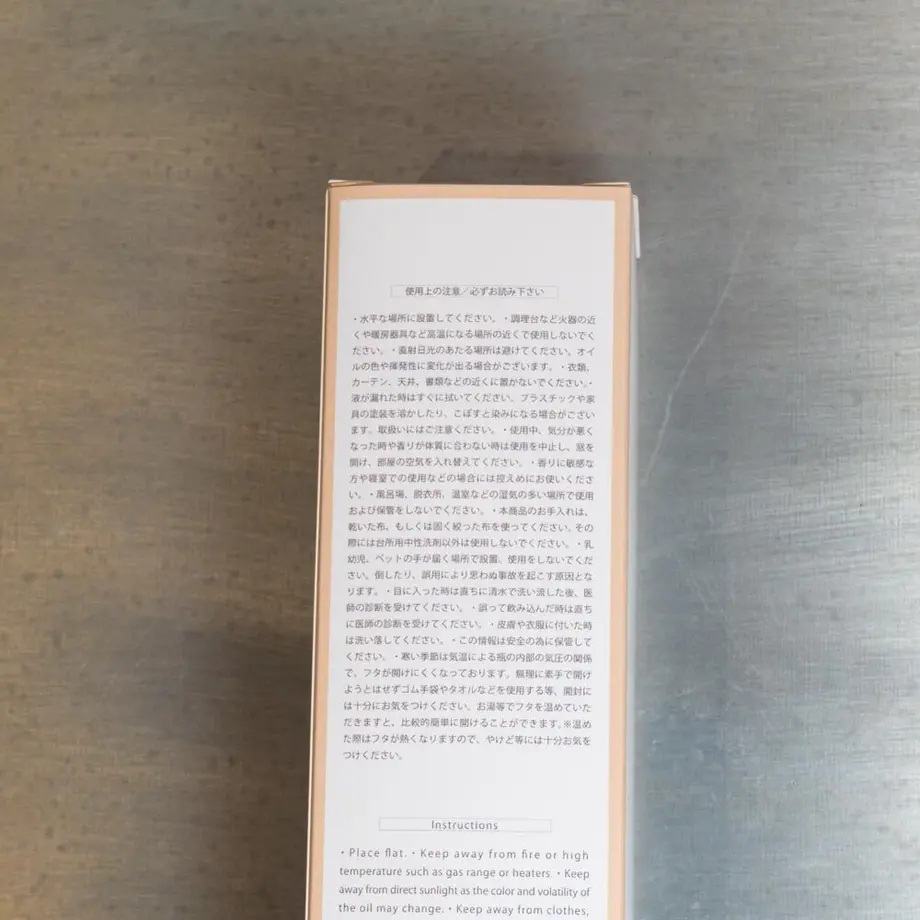 使用上の注意／必ずお読み下さい
・水平な場所に設置してください。・調理台など火器の近
くや暖房器具など高温になる場所の近くで使用しないでく
ださい。・直射日光のあたる場所は避けてください。オイ
ルの色や揮発性に変化が出る場合がございます。・衣類、
カーテン、天井、書類などの近くに置かないでください。・
液が漏れた時はすぐに拭いてください。プラスチックや家
具の塗装を溶かしたり、こぼすと染みになる場合がござい
ます。取扱いにはご注意ください。・使用中、気分が悪く
なった時や香りが体質に合わない時は使用を中止し、窓を
開け、部屋の空気を入れ替えてください。・香りに敏感な
方や寝室での使用などの場合には控えめにお使いくださ
い。・風呂場、脱衣所、温室などの湿気の多い場所で使用
および保管をしないでください。・本商品のお手入れは、
乾いた布、もしくは固く絞った布を使ってください。その
際には台所用中性洗剤以外は使用しないでください。・乳
幼児、ペットの手が届く場所で設置、使用をしないでくだ
さい。倒したり、誤用により思わぬ事故を起こす原因とな
ります。・目に入った時は直ちに清水で洗い流した後、医
師の診断を受けてください。・誤って飲み込んだ時は直ち
に医師の診断を受けてください。・皮膚や衣服に付いた時
は洗い落してください。・この情報は安全の為に保管して
ください。・寒い季節は気温による瓶の内部の気圧の関係
で、フタが開けにくくなっております。無理に素手で開け
ようとはせずゴム手袋やタオルなどを使用する等、開封に
は十分にお気をつけください。お湯等でフタを温めていた
だきますと、比較的簡単に開けることができます。※温め
た際はフタが熱くなりますので、やけど等には十分お気を
つけください。
Instructions
・Place flat.・Keep away from fire or high
temperature such as gas range or heaters.・Keep
away from direct sunlight as the color and volatility of
the oil may change.・Keep away from clothes,